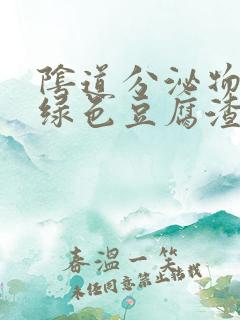 陰道分泌物
绿色豆腐渣
春溫一笑
未经同意禁止转载